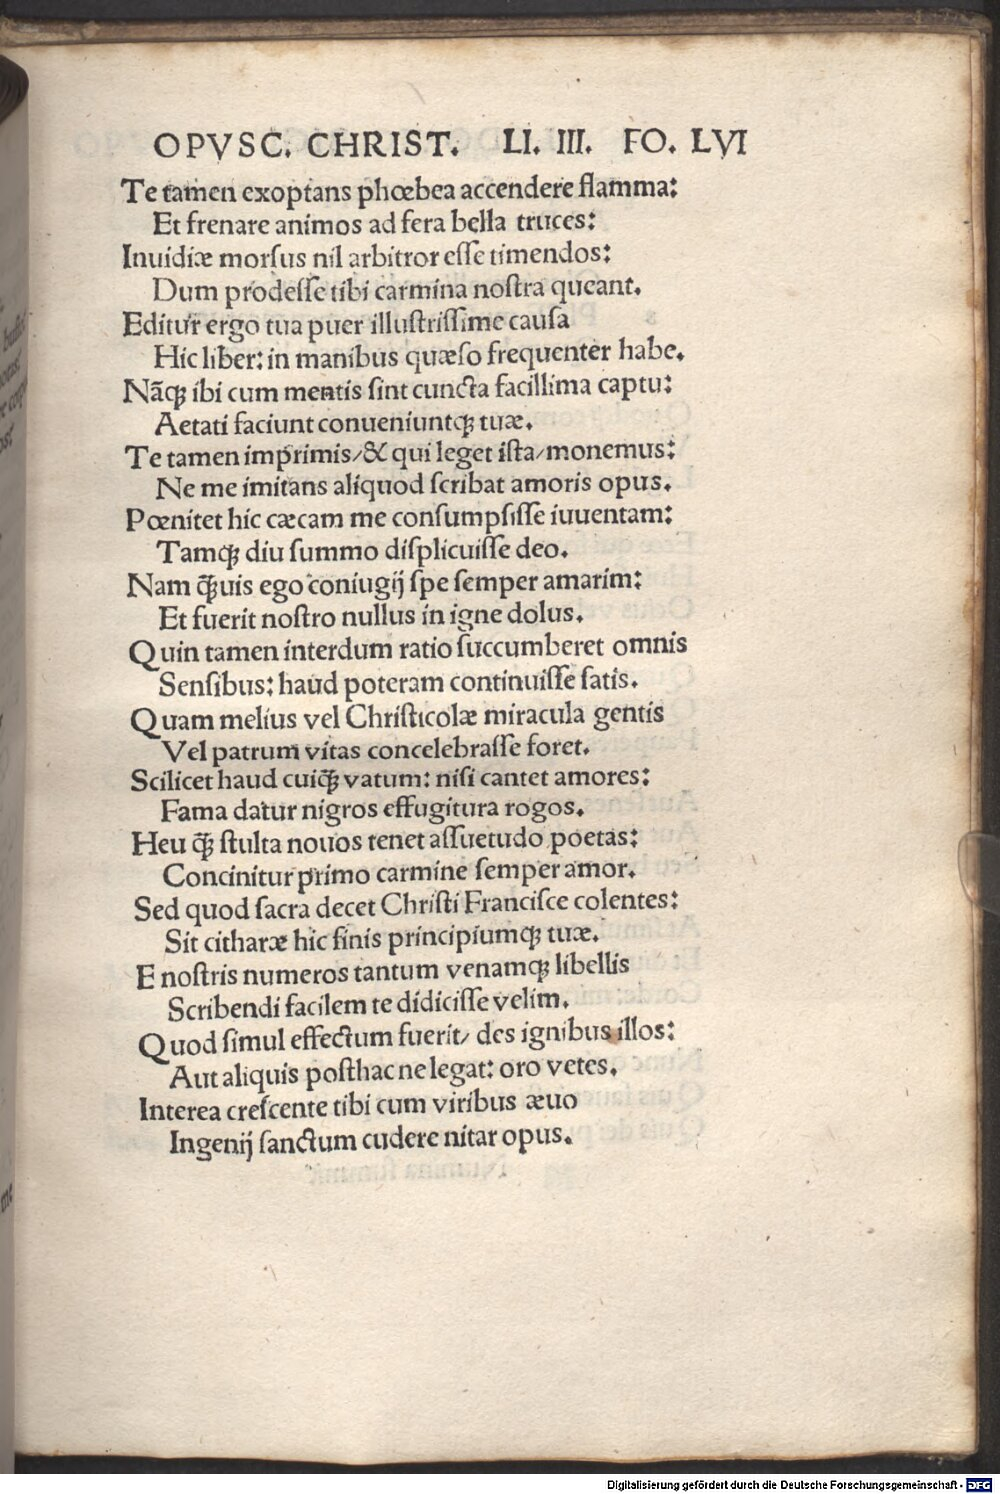 OPVSC. CHRIST. LI. III. FO. LVI
Te tamen exoptans phœbea accendere flamma:
Et frenare animos ad fera bella truces:
Inuidiæ morſus nil arbitror eſſe timendos:
Dum prodeſſe tibi carmina noſtra queant.
Editur ergo tua puer illuſtriſſime cauſa
Hic liber: in manibus quæſo frequenter habe.
Nāqꝫ ibi cum mentis ſint cuncta facillima captu:
Aetati faciunt conueniuntqꝫ tuæ.
Te tamen imprimis/& qui leget iſta/monemus:
Ne me imitans aliquod ſcribat amoris opus.
Pœnitet hic cæcam me conſumpſiſſe iuuentam:
Tamqꝫ diu ſummo diſplicuiſſe deo.
Nam q̄ꝫuis ego coniugij ſpe ſemper amarim:
Et fuerit noſtro nullus in igne dolus.
Quin tamen interdum ratio ſuccumberet omnis
Senſibus: haud poteram continuiſſe ſatis.
Quam melius vel Chriſticolæ miracula gentis
Vel patrum vitas concelebraſſe foret.
Scilicet haud cuiq̄ꝫ vatum: niſi cantet amores:
Fama datur nigros effugitura rogos.
Heu q̄ꝫ ſtulta nouos tenet aſſuetudo poetas:
Concinitur primo carmine ſemper amor.
Sed quod ſacra decet Chriſti Franciſce colentes:
Sit citharæ hic finis principiumqꝫ tuæ.
E noſtris numeros tantum venamqꝫ libellis
Scribendi facilem te didiciſſe velim.
Quod ſimul effectum fuerit/ des ignibus illos:
Aut aliquis poſthac ne legat: oro vetes.
Interea creſcente tibi cum viribus æuo
Ingenij ſanctum cudere nitar opus.
Digitalisierung gefördert durch die Deutsche Forschungsgemeinschaft - DFG